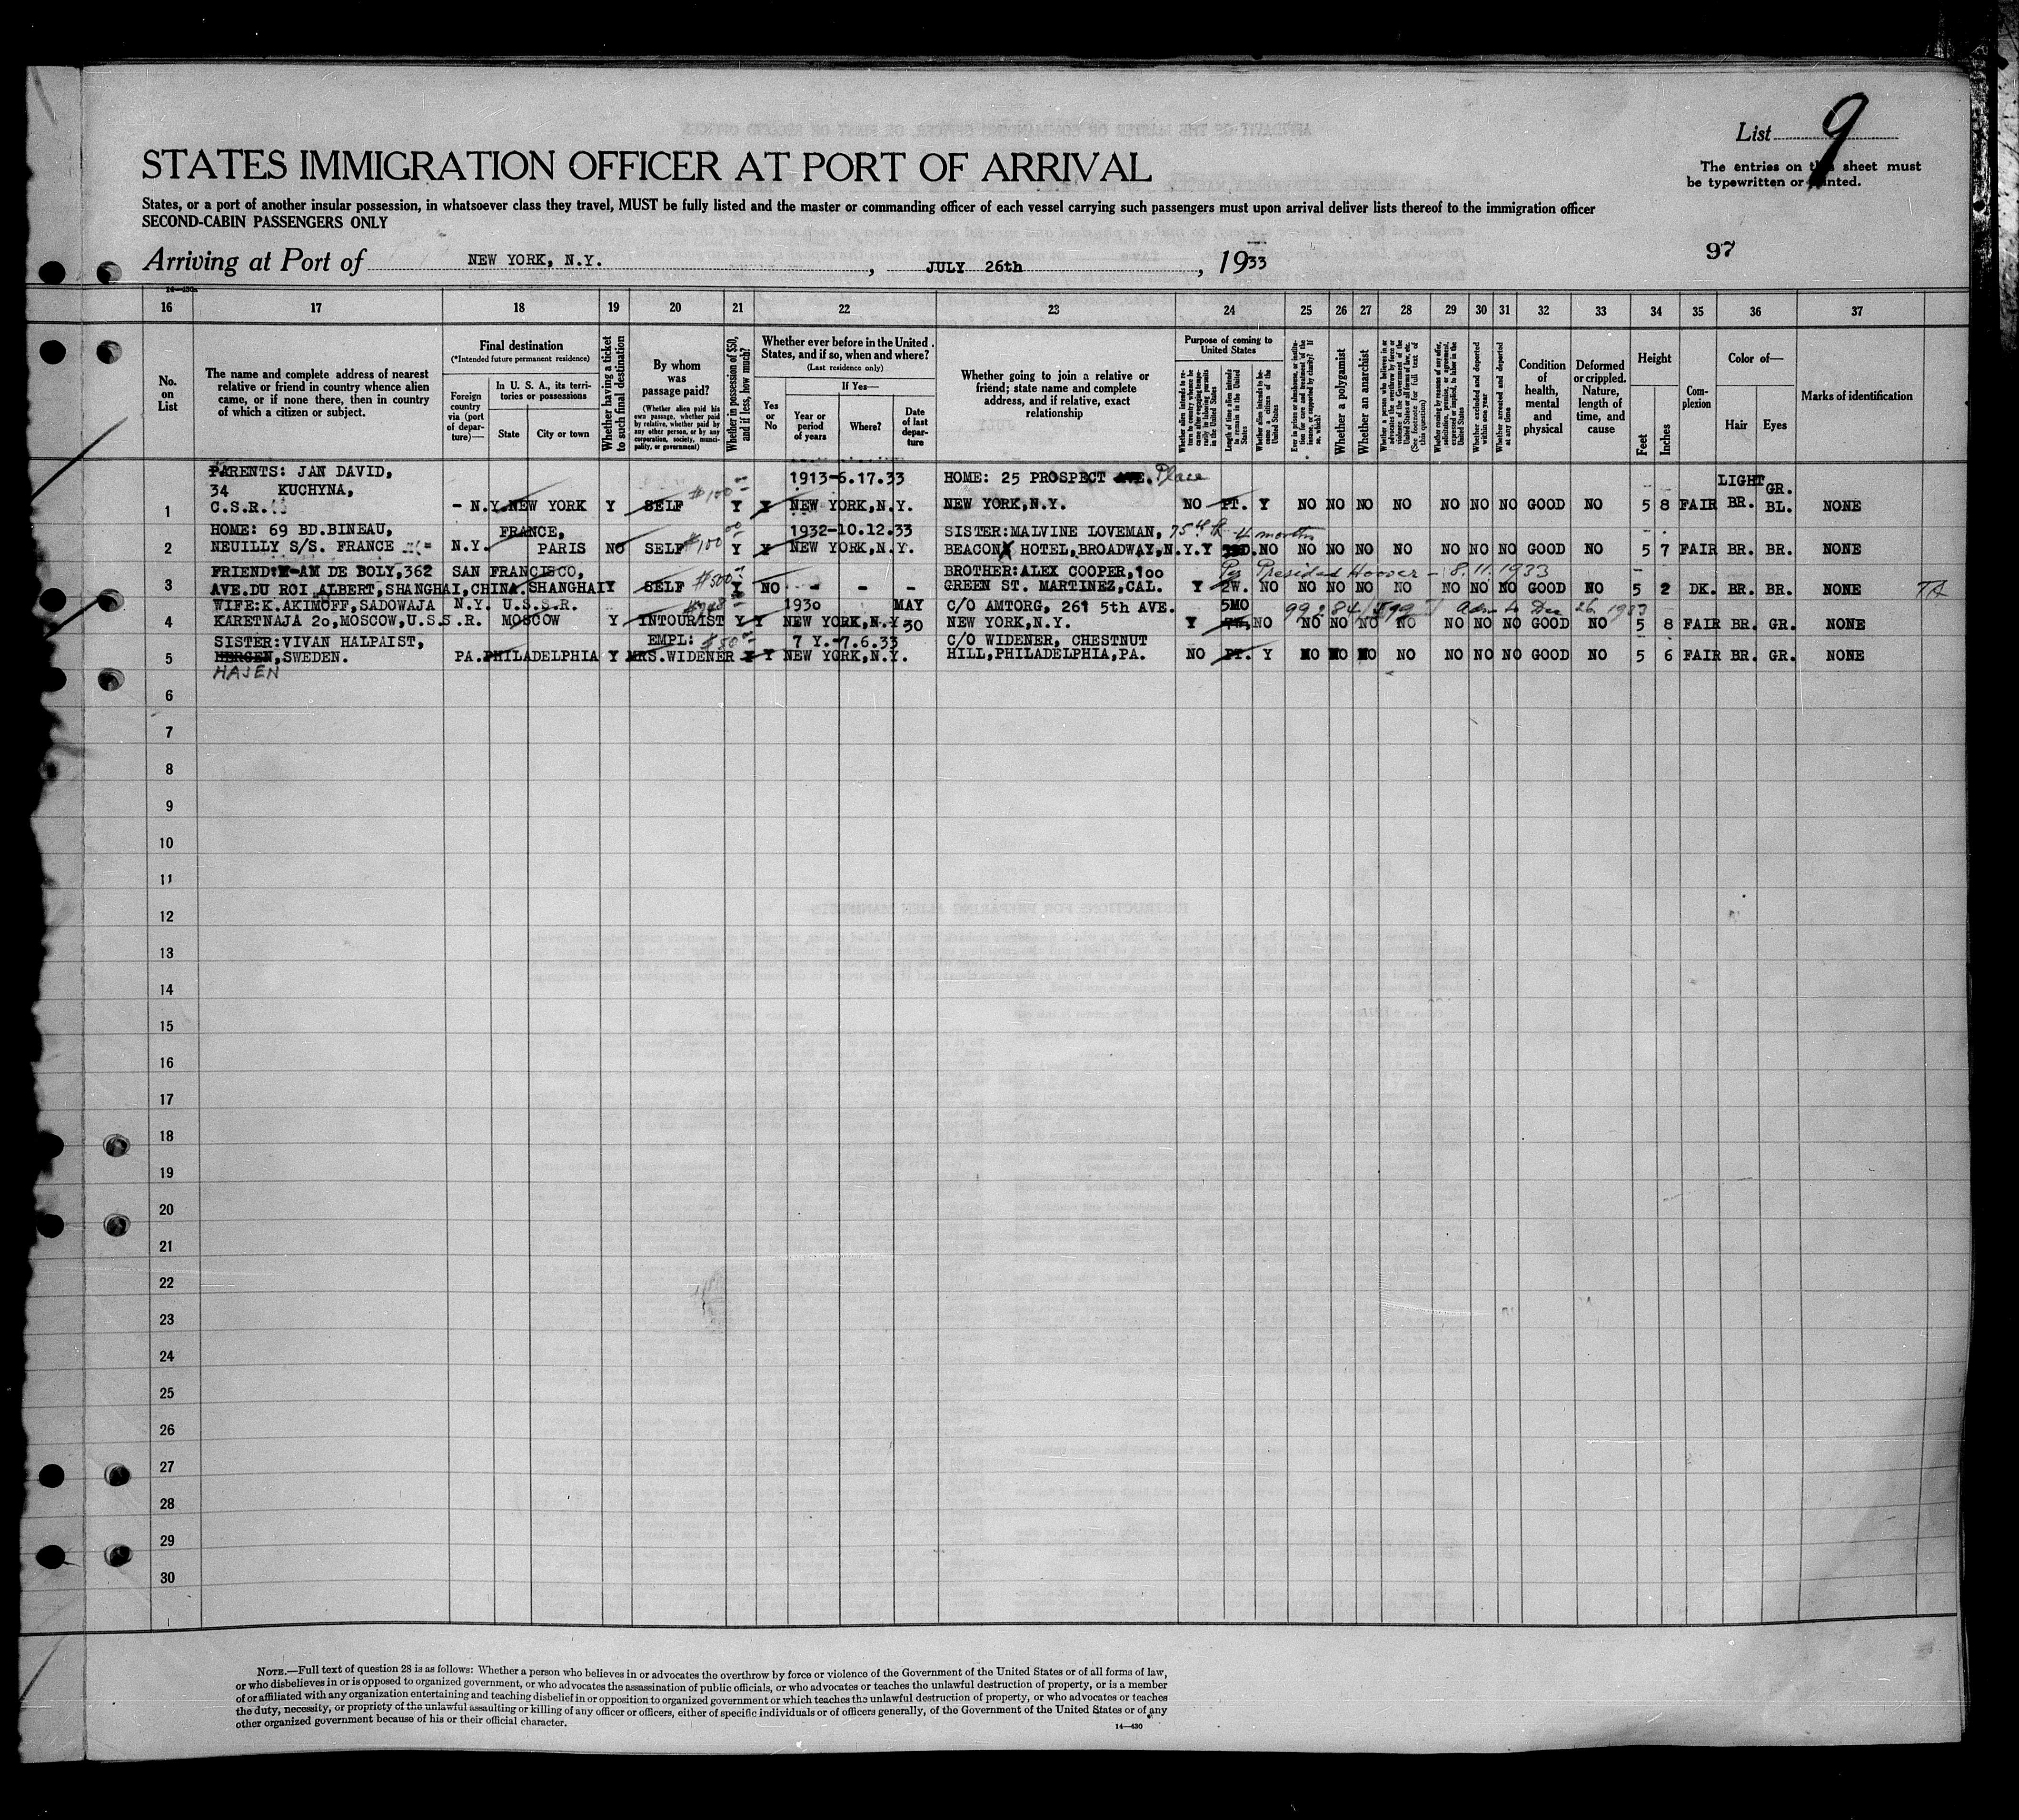 List 9
STATES IMMIGRATION OFFICER AT PORT OF ARRIVAL
The entries on this sheet must
be typewritten or printed.
States, or a port of another insular possession, in whatsoever class they travel, MUST be fully listed and the master or commanding officer of each vessel carrying such passengers must upon arrival deliver lists thereof to the immigration officer
SECOND-CABIN PASSENGERS ONLY
97
Arriving at Port of NEW YORK, N.Y. , JULY 26th , 1933
16 17 18 19 20 21 22 23 24 25 26 27 28 29 30 31 32 33 34 35 36 37
No. on List
The name and complete address of nearest relative or friend in country whence alien came, or if none there, then in country of which a citizen or subject.
Final destination
(*Intended future permanent residence)
Foreign country via (port of departure)—
In U. S. A., its territories or possessions
State
City or town
Whether having a ticket to such final destination
By whom was passage paid?
(Whether alien paid his own passage, whether paid by relative, whether paid by any other person, or by any corporation, society, municipality, or government)
Whether in possession of $50, and if less, how much?
Whether ever before in the United States, and if so, when and where?
(Last residence only)
Yes or No
If Yes—
Year or period of years
Where?
Date of last departure
Whether going to join a relative or friend; state name and complete address, and if relative, exact relationship
Purpose of coming to United States
Length of time alien intends to remain in the United States
Whether alien intends to become a citizen of the United States
Whether a polygamist
Whether an anarchist
Whether excluded and deported within one year
Whether arrested and deported at any time
Condition of health, mental and physical
Deformed or crippled. Nature, length of time, and cause
Height
Feet
Inches
Complexion
Color of—
Hair
Eyes
Marks of identification
PARENTS: JAN DAVID, 1913-6.17.33 HOME: 25 PROSPECT AVE. Place
34 KUCHYNA, $100 LIGHT GR.
1 C.S.R. - N.Y. NEW YORK Y SELF Y Y NEW YORK, N.Y. NEW YORK, N.Y. NO PT. Y NO NO NO NO NO NO NO GOOD NO 5 8 FAIR BR. BL. NONE
HOME: 69 BD.BINEAU, FRANCE, 1932-10.12.33 SISTER: MALVINE LOVEMAN, 75th St 4 months
2 NEUILLY S/S. FRANCE N.Y. PARIS NO SELF $100 Y Y NEW YORK, N.Y. BEACON HOTEL, BROADWAY, N.Y. Y NO NO NO NO NO NO NO NO GOOD NO 5 7 FAIR BR. BR. NONE
FRIEND: AM DE BOLY, 362 SAN FRANCISCO, BROTHER: ALEX COOPER, 100 Per President Hoover - 8.11.1933
3 AVE.DU ROI ALBERT, SHANGHAI, CHINA. SHANGHAI Y SELF $500 Y NO - - - GREEN ST. MARTINEZ, CAL. Y 2W. NO NO NO NO NO NO NO NO GOOD NO 5 2 DK. BR. BR. NONE
WIFE: K. AKIMOFF, SADOWAJA N.Y. U.S.S.R. 1930 MAY C/O AMTORG, 261 5th AVE. 5MO Adm to Dec 26 1933
4 KARETNAJA 20, MOSCOW, U.S.S.R. MOSCOW Y INTOURIST Y Y NEW YORK, N.Y. 30 NEW YORK, N.Y. Y NO NO NO NO NO NO NO NO GOOD NO 5 8 FAIR BR. GR. NONE
SISTER: VIVAN HALPAIST, EMPL: $50 7 Y.-7.6.33 C/O WIDENER, CHESTNUT
5 BERGEN, SWEDEN. PA. PHILADELPHIA Y MRS. WIDENER Y Y NEW YORK, N.Y. HILL, PHILADELPHIA, PA. NO PT. Y NO NO NO NO NO NO NO GOOD NO 5 6 FAIR BR. GR. NONE
HAJEN
6
7
8
9
10
11
12
13
14
15
16
17
18
19
20
21
22
23
24
25
26
27
28
29
30
NOTE.—Full text of question 28 is as follows: Whether a person who believes in or advocates the overthrow by force or violence of the Government of the United States or of all forms of law,
or who disbelieves in or is opposed to organized government, or who advocates the assassination of public officials, or who advocates or teaches the unlawful destruction of property, or is a member
of or affiliated with any organization entertaining and teaching disbelief in or opposition to organized government or which teaches the unlawful destruction of property, or who advocates or teaches
the duty, necessity, or propriety of the unlawful assaulting or killing of any officer or officers, either of specific individuals or of officers generally, of the Government of the United States or of any
other organized government because of his or their official character.
14—430